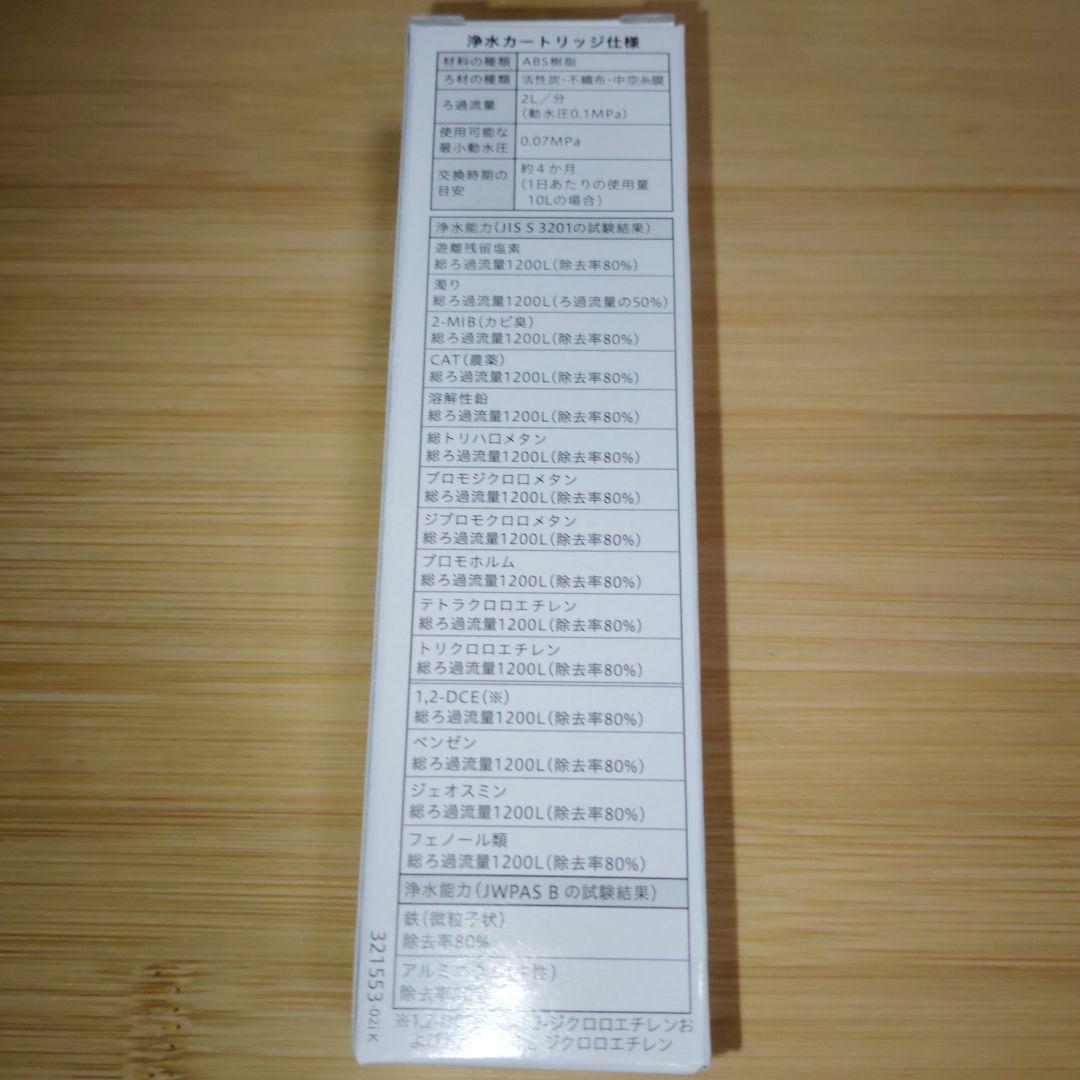 浄水カートリッジ仕様
材料の種類 ABS樹脂
ろ材の種類 活性炭・不織布・中空糸膜
ろ過流量 2L／分
(動水圧0.1MPa)
使用可能な
最小動水圧 0.07MPa
交換時期の
目安 約4か月
(1日あたりの使用量
10Lの場合)
浄水能力(JIS S 3201の試験結果)
遊離残留塩素
総ろ過流量1200L(除去率80%)
濁り
総ろ過流量1200L(ろ過流量の50%)
2-MIB(カビ臭)
総ろ過流量1200L(除去率80%)
CAT(農薬)
総ろ過流量1200L(除去率80%)
溶解性鉛
総ろ過流量1200L(除去率80%)
総トリハロメタン
総ろ過流量1200L(除去率80%)
ブロモジクロロメタン
総ろ過流量1200L(除去率80%)
ジブロモクロロメタン
総ろ過流量1200L(除去率80%)
ブロモホルム
総ろ過流量1200L(除去率80%)
テトラクロロエチレン
総ろ過流量1200L(除去率80%)
トリクロロエチレン
総ろ過流量1200L(除去率80%)
1,2-DCE(※)
総ろ過流量1200L(除去率80%)
ベンゼン
総ろ過流量1200L(除去率80%)
ジェオスミン
総ろ過流量1200L(除去率80%)
フェノール類
総ろ過流量1200L(除去率80%)
浄水能力(JWPAS B の試験結果)
鉄(微粒子状)
除去率80%
アルミ
除去率
ジクロロエチレンお
よび ジクロロエチレン
321553-021K